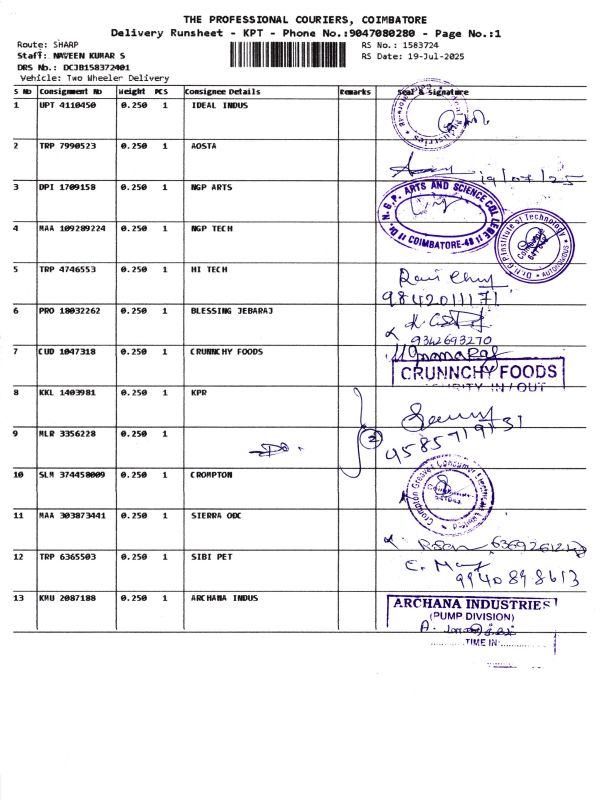 THE PROFESSIONAL COURIERS, COIMBATORE
Delivery Runsheet - KPT - Phone No.:9047080280 - Page No.:1
Route: SHARP
RS No.: 1583724
Staff: NAVEEN KUMAR S
RS Date: 19-Jul-2025
DRS No.: DCJB158372401
Vehicle: Two Wheeler Delivery
S NO Consignment No Weight PCS Consignee Details Remarks Seal & Signature
1 UPT 4110450 0.250 1 IDEAL INDUS
2 TRP 7990523 0.250 1 AOSTA
19/07/25
3 DPI 1709158 0.250 1 NGP ARTS
Dr. N. G. P. ARTS AND SCIENCE COLLEGE
COIMBATORE-48
4 MAA 109289224 0.250 1 NGP TECH
Dr. N.G.P. Institute of Technology
AUTONOMOUS
5 TRP 4746553 0.250 1 HI TECH
9842011171
6 PRO 18032262 0.250 1 BLESSING JEBARAJ
9342693270
7 CUD 1047318 0.250 1 CRUNNCHY FOODS
CRUNNCHY FOODS
SECURITY IN / OUT
8 KKL 1403981 0.250 1 KPR
9 MLR 3356228 0.250 1
Do.
2
10 SLM 374458009 0.250 1 CROMPTON
Crompton Greaves Consumer Electricals Limited
11 MAA 303873441 0.250 1 SIERRA ODC
12 TRP 6365503 0.250 1 SIBI PET
9940898613
13 KMU 2087188 0.250 1 ARCHANA INDUS
ARCHANA INDUSTRIES
(PUMP DIVISION)
TIME IN